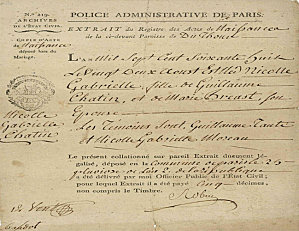 POLICE ADMINISTRATIVE DE PARIS.
ARCHIVES
DE L'ÉTAT CIVIL.
COPIE D'ACTE
de Naissance
déposé lors du
Mariage.
EXTRAIT du Registre des Actes de Naissances
de la ci-devant Paroisse de
L'an Mil Sept Cent Soixante huit
Le Vingt Deux Aoust Est Née Nicolle
Gabrielle, fille de Guillaume
Chatin, et de Marie son
Epouse
Les Témoins Sont, Guillaume
et Nicolle Gabrielle Moreau
Nicolle
Gabrielle
Chatin
Le présent collationné sur pareil Extrait dument
galisé, déposé en la
pluviose de l'an 2. de la République
a été délivré par moi Officier Public de l'Etat Civil;
pour lequel Extrait il a été payé cinq décimes,
non compris le Timbre.
Robin